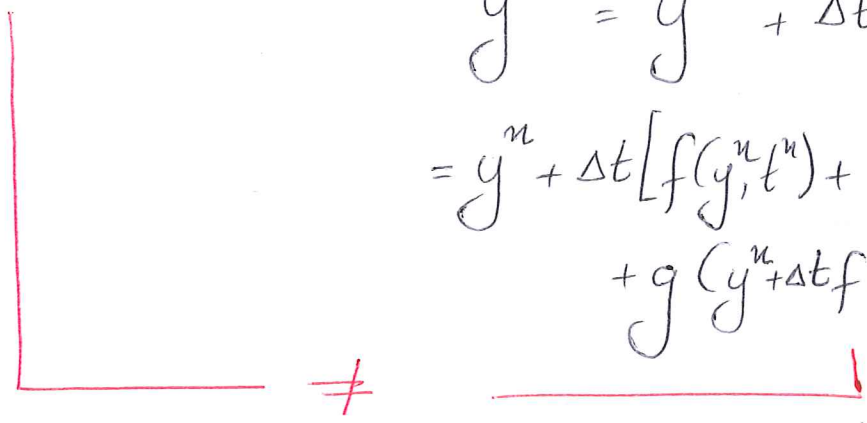 y = y + Δt
= yⁿ + Δt[f(yⁿ, tⁿ) +
+ g(yⁿ + Δt f
≠